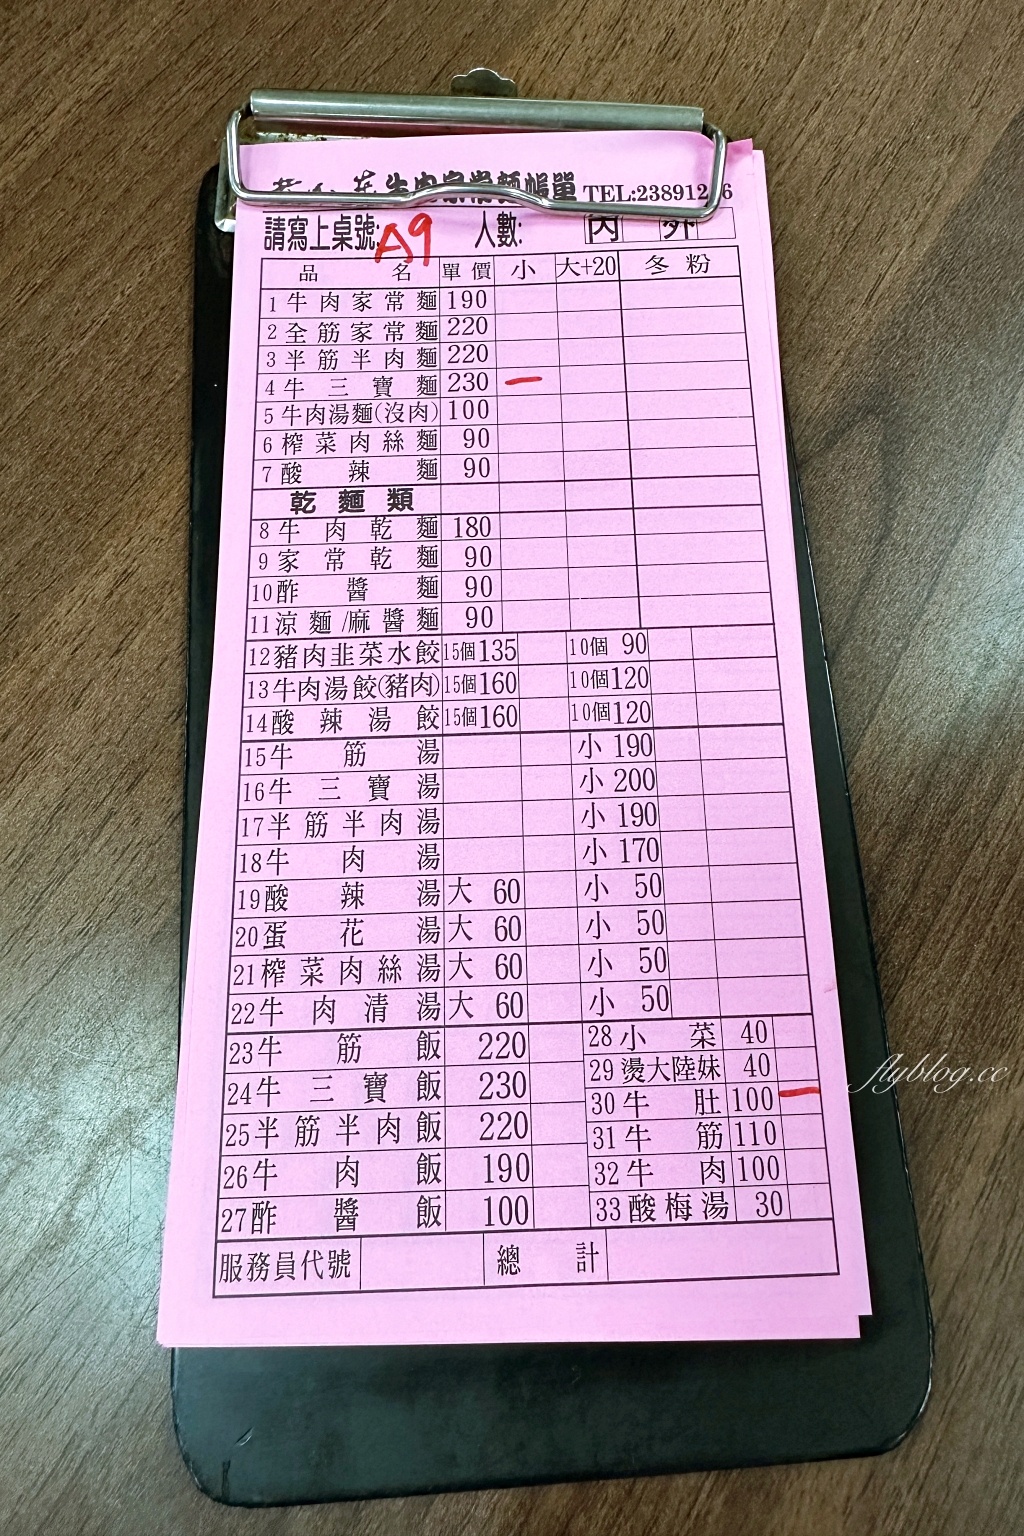 牛肉家常麵帳單 TEL:23891
請寫上桌號: A9 人數: 內 外
品名 單價 小 大+20 冬粉
1 牛肉家常麵 190
2 全筋家常麵 220
3 半筋半肉麵 220
4 牛三寶麵 230 一
5 牛肉湯麵(沒肉) 100
6 榨菜肉絲麵 90
7 酸辣麵 90
乾麵類
8 牛肉乾麵 180
9 家常乾麵 90
10 酢醬麵 90
11 涼麵/麻醬麵 90
12 豬肉韭菜水餃 15個 135 10個 90
13 牛肉湯餃(豬肉) 15個 160 10個 120
14 酸辣湯餃 15個 160 10個 120
15 牛筋湯 小 190
16 牛三寶湯 小 200
17 半筋半肉湯 小 190
18 牛肉湯 小 170
19 酸辣湯 大 60 小 50
20 蛋花湯 大 60 小 50
21 榨菜肉絲湯 大 60 小 50
22 牛肉清湯 大 60 小 50
23 牛筋飯 220
24 牛三寶飯 230
25 半筋半肉飯 220
26 牛肉飯 190
27 酢醬飯 100
28 小菜 40
29 燙大陸妹 40
30 牛肚 100 一
31 牛筋 110
32 牛肉 100
33 酸梅湯 30
服務員代號 總計
flyblog.cc